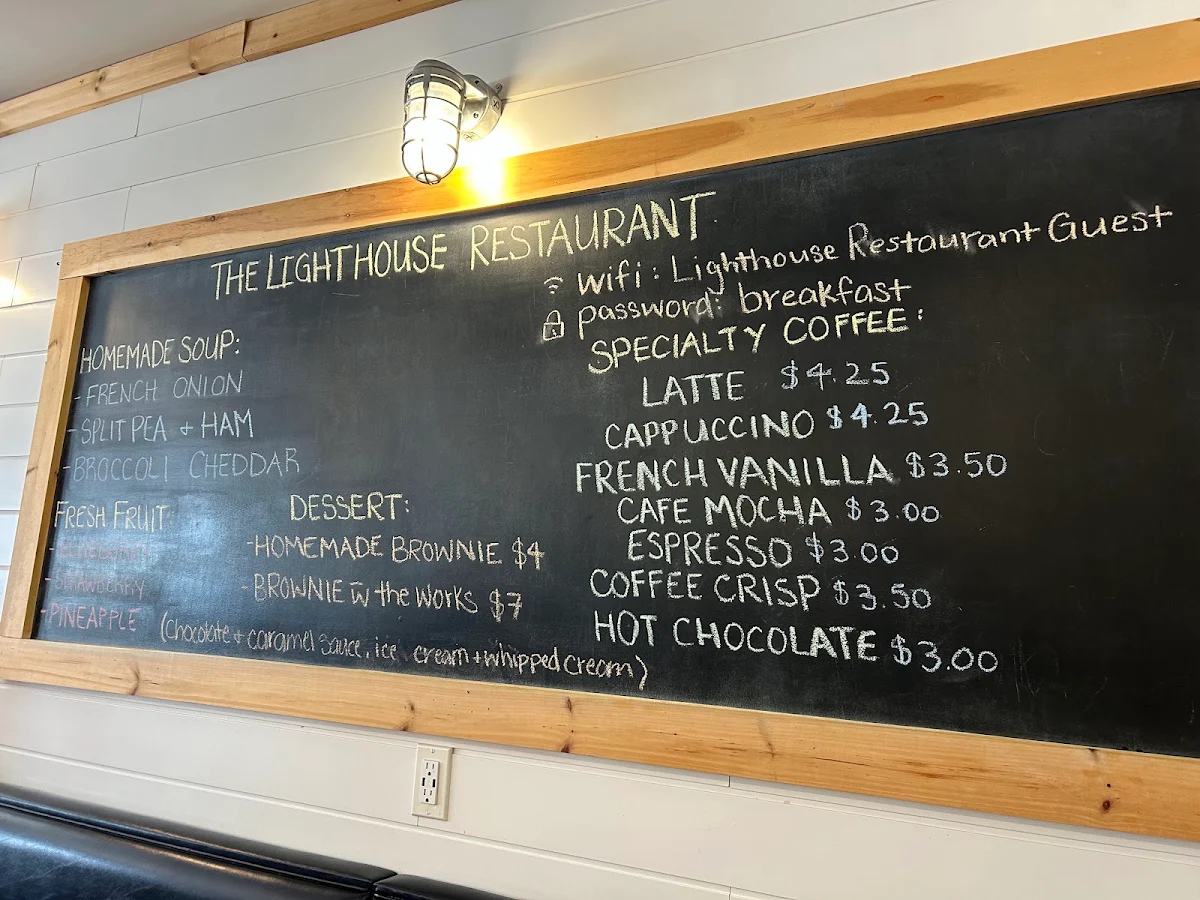 THE LIGHTHOUSE RESTAURANT
wifi: Lighthouse Restaurant Guest
password: breakfast
HOMEMADE SOUP:
- FRENCH ONION
- SPLIT PEA + HAM
- BROCCOLI CHEDDAR
FRESH FRUIT:
- BLUEBERRY
- STRAWBERRY
- PINEAPPLE
DESSERT:
- HOMEMADE BROWNIE $4
- BROWNIE w̄ the WORKS $7
(chocolate + caramel sauce, ice cream + whipped cream)
SPECIALTY COFFEE:
LATTE $4.25
CAPPUCCINO $4.25
FRENCH VANILLA $3.50
CAFE MOCHA $3.00
ESPRESSO $3.00
COFFEE CRISP $3.50
HOT CHOCOLATE $3.00